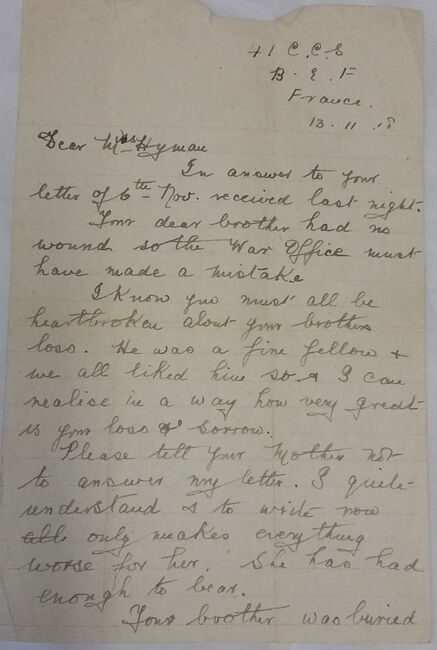 41 C.C.S
B.E.F
France.
13.11.18
Dear Mrs Hyman
In answer to your
letter of 6th Nov. received last night.
Your dear brother had no
wound so the War Office must
have made a mistake
I know you must all be
heartbroken about your brothers
loss. He was a fine fellow &
we all liked him so & I can
realise in a way how very great
is your loss & sorrow.
Please tell your Mother not
to answer my letter. I quite
understand & to write now
all only makes everything
worse for her. She has had
enough to bear.
Your brother was buried